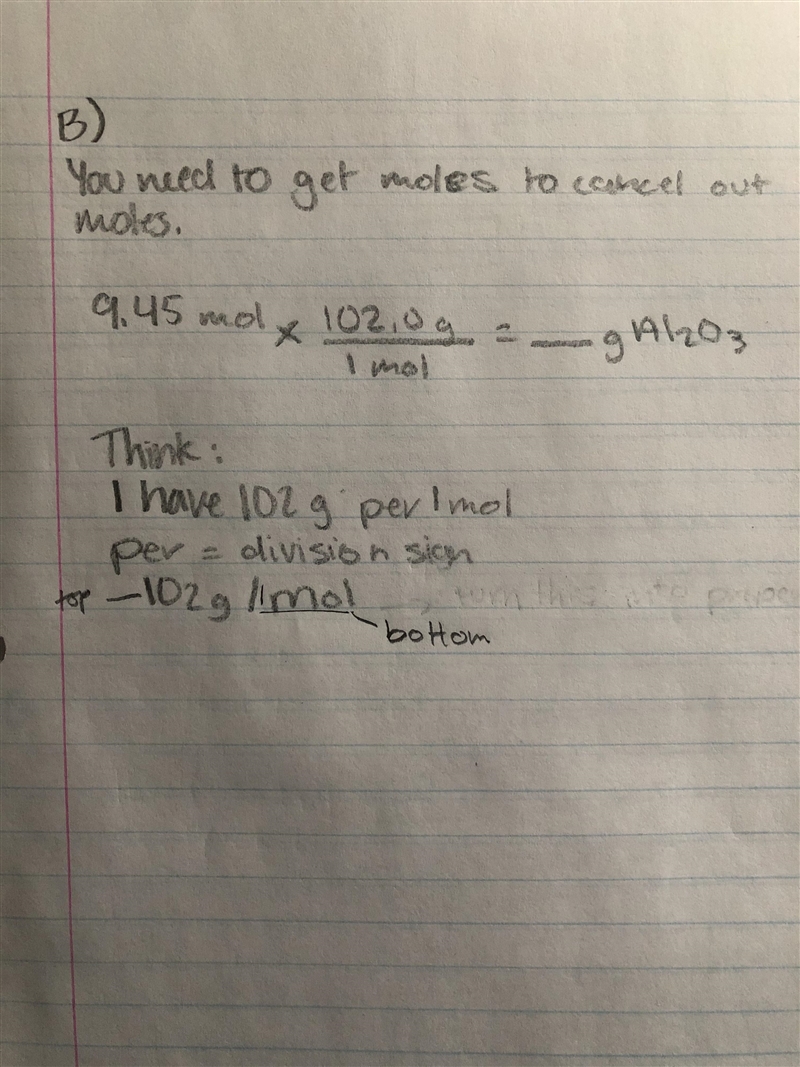 B)
You need to get moles to cancel out
moles.
9.45 mol × 102.0 g / 1 mol = __ g Al2O3
Think:
I have 102 g per 1 mol
per = division sign
top – 102 g / 1 mol turn this into
bottom